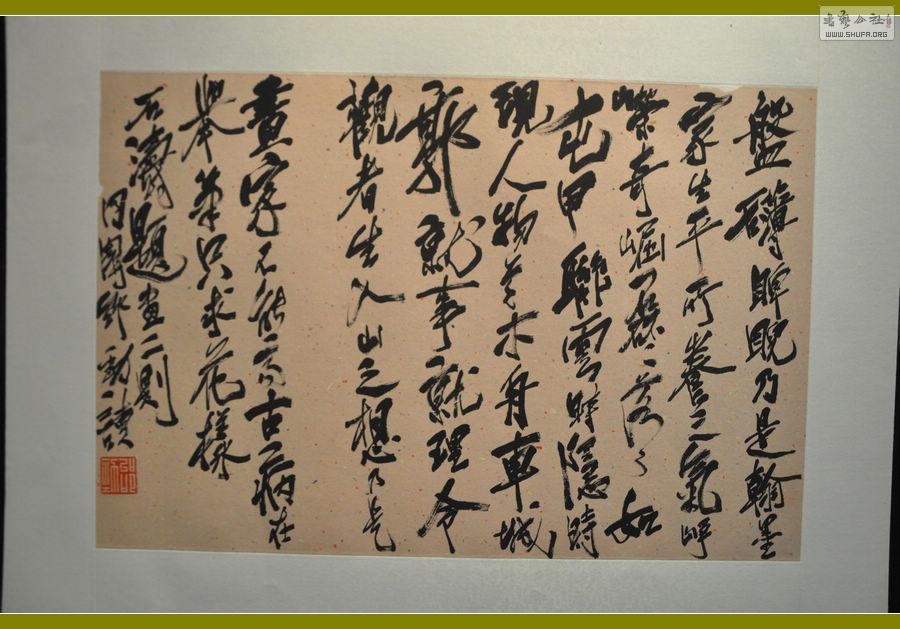 盤礴睥睨乃是翰墨
家生平所養之氣崢
嶸奇崛磊磊落落如
屯甲聯雲時隱時
現人物草木舟車城
郭就事就理令
觀者生入山之想乃是
畫家不能高古病在
舉筆只求花樣
石濤題畫二則
書艺公社
WWW.SHUFA.ORG